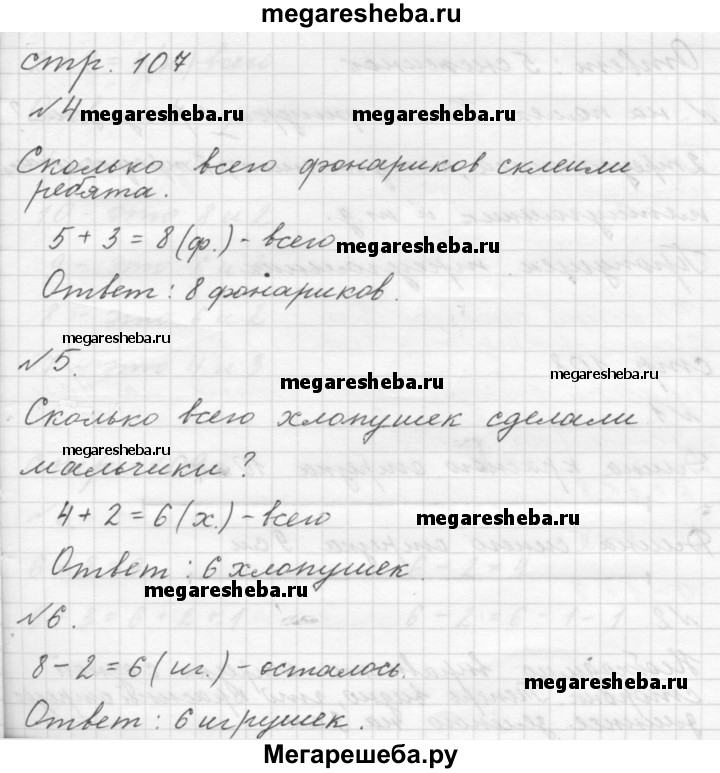 megaresheba.ru
стр. 107
№4 megaresheba.ru megaresheba.ru
Сколько всего фонариков склеили
ребята.
5 + 3 = 8 (ф.) - всего megaresheba.ru
Ответ : 8 фонариков.
megaresheba.ru
№5. megaresheba.ru megaresheba.ru
Сколько всего хлопушек сделали
megaresheba.ru
мальчики ?
4 + 2 = 6 (х.) - всего megaresheba.ru
Ответ : 6 хлопушек.
megaresheba.ru
№6.
8 - 2 = 6 (иг.) - осталось. megaresheba.ru
Ответ : 6 игрушек.
Мегарешеба.ру